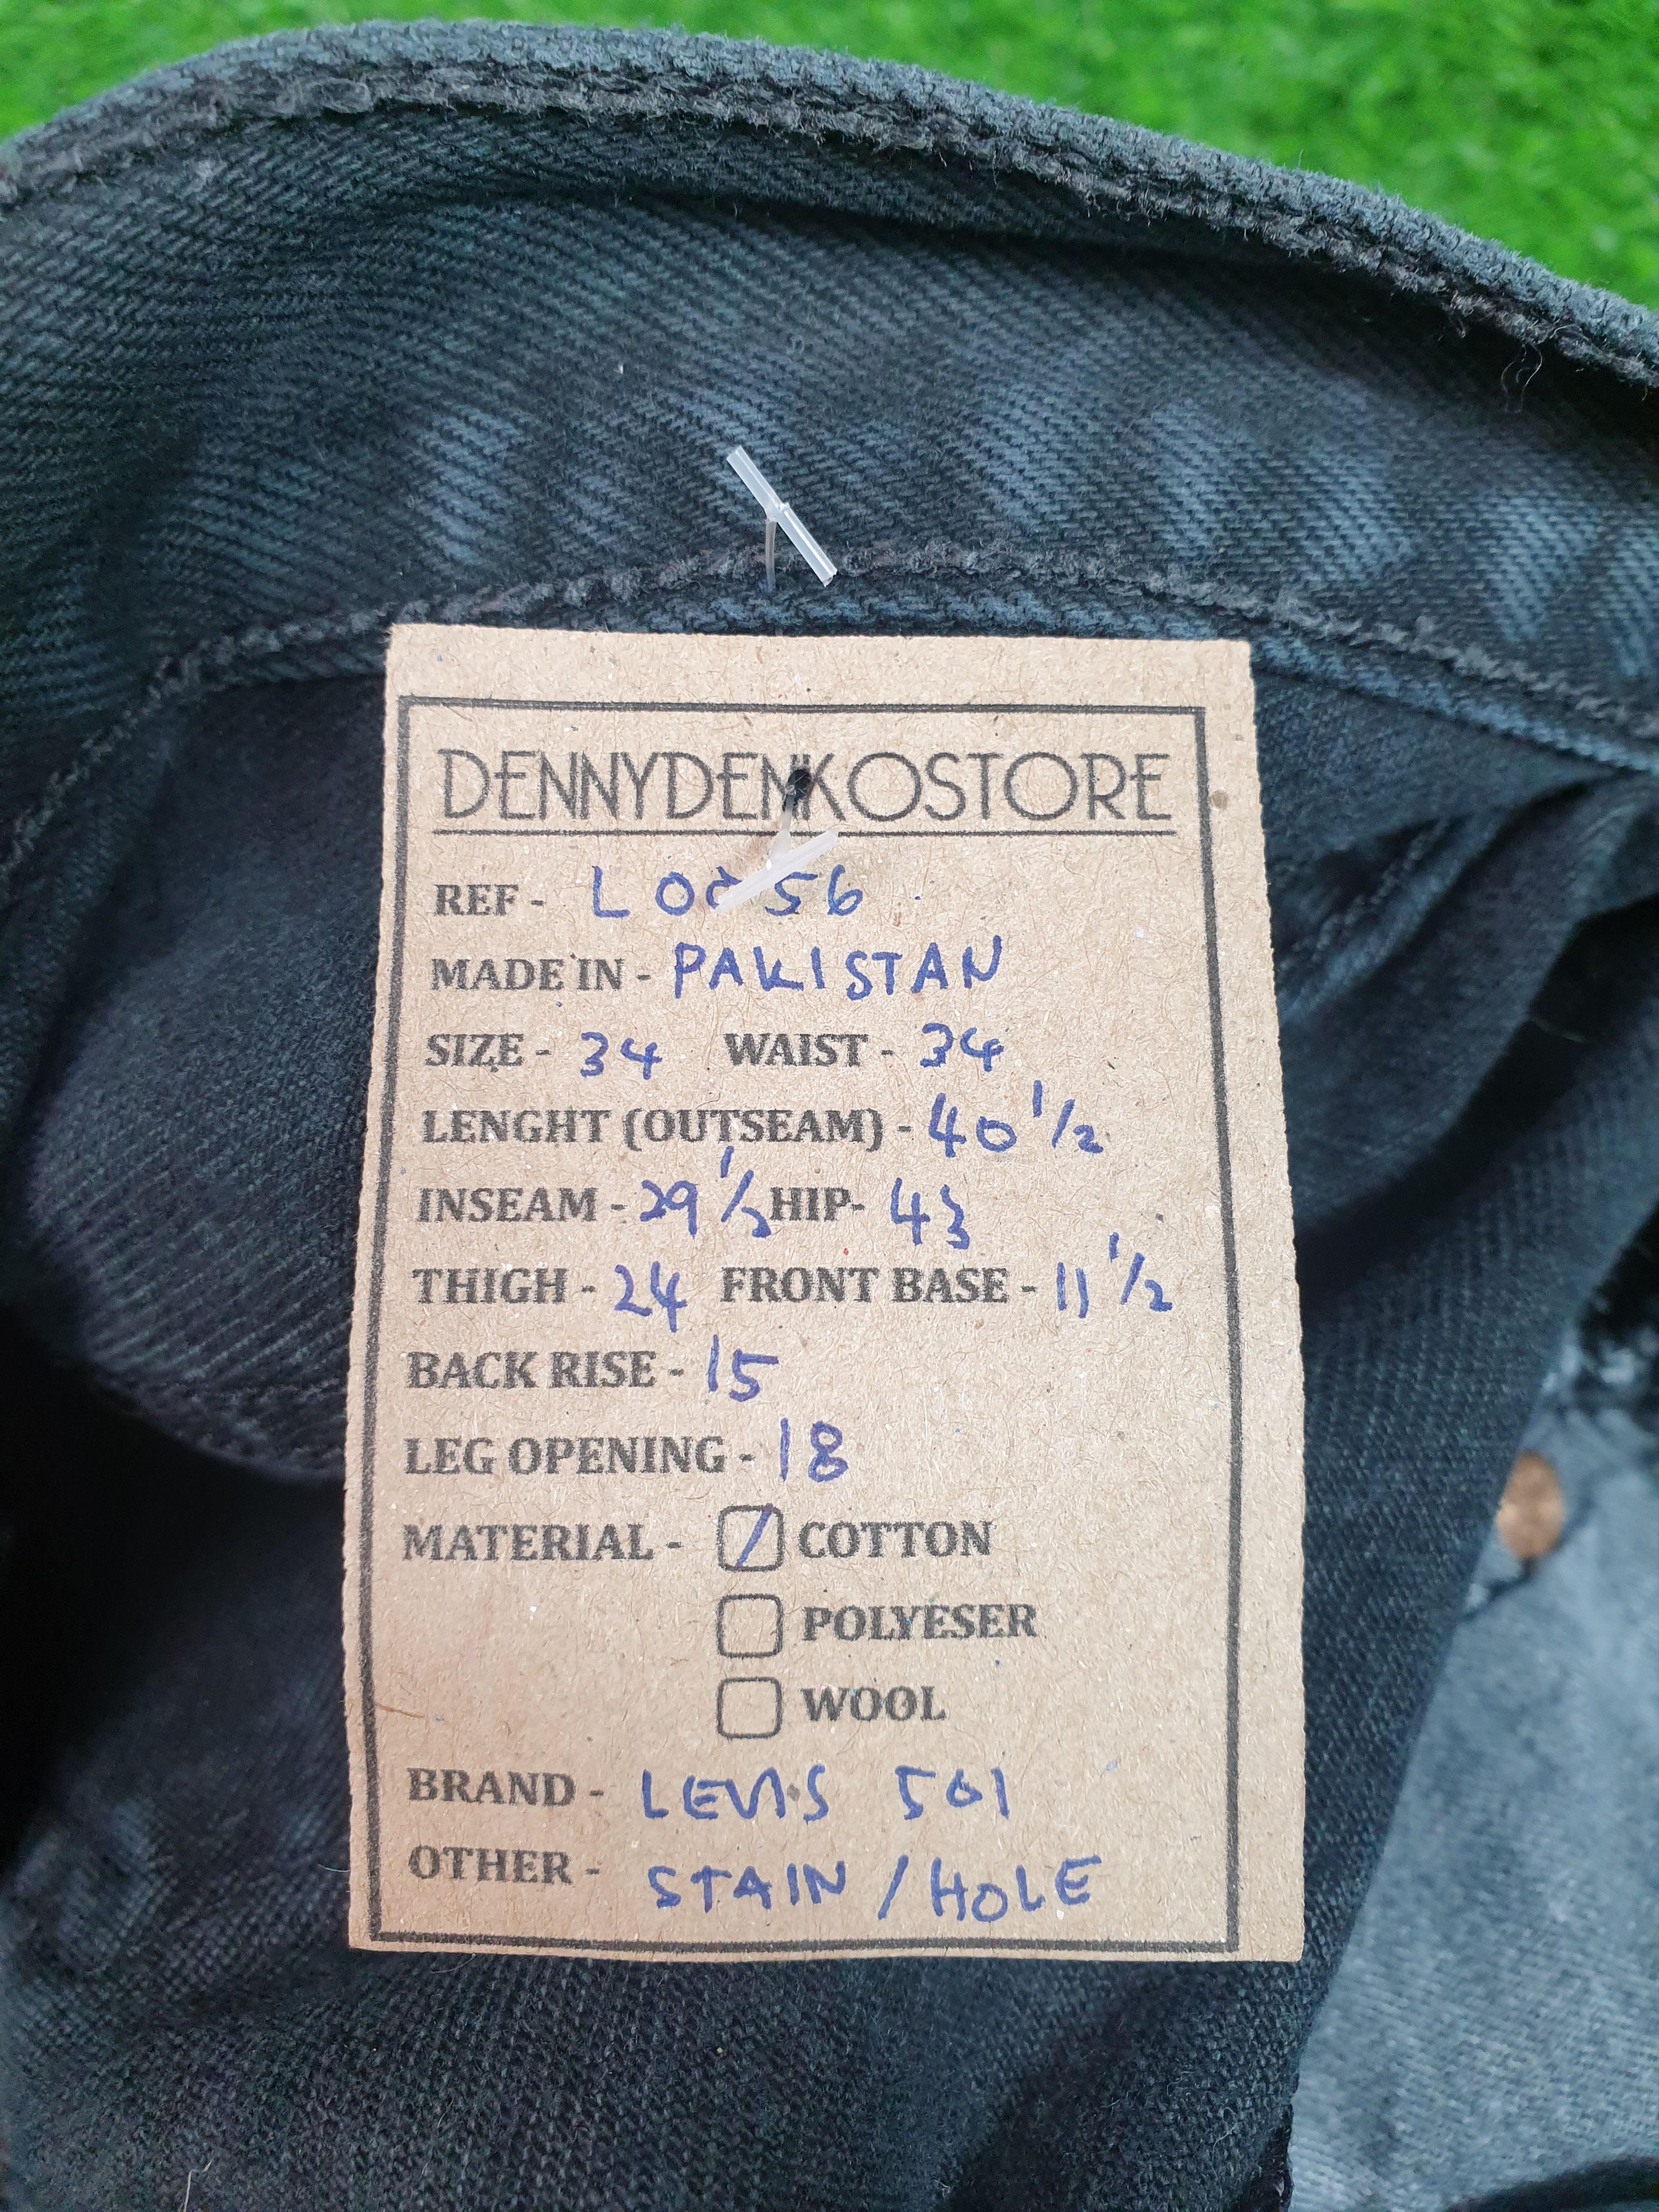 DENNYDENKOSTORE
REF - L0056
MADE IN - PAKISTAN
SIZE - 34 WAIST - 34
LENGHT (OUTSEAM) - 40 1/2
INSEAM - 29 1/2 HIP- 43
THIGH - 24 FRONT BASE - 11 1/2
BACK RISE - 15
LEG OPENING - 18
MATERIAL - COTTON
POLYESER
WOOL
BRAND - LEVIS 501
OTHER - STAIN / HOLE